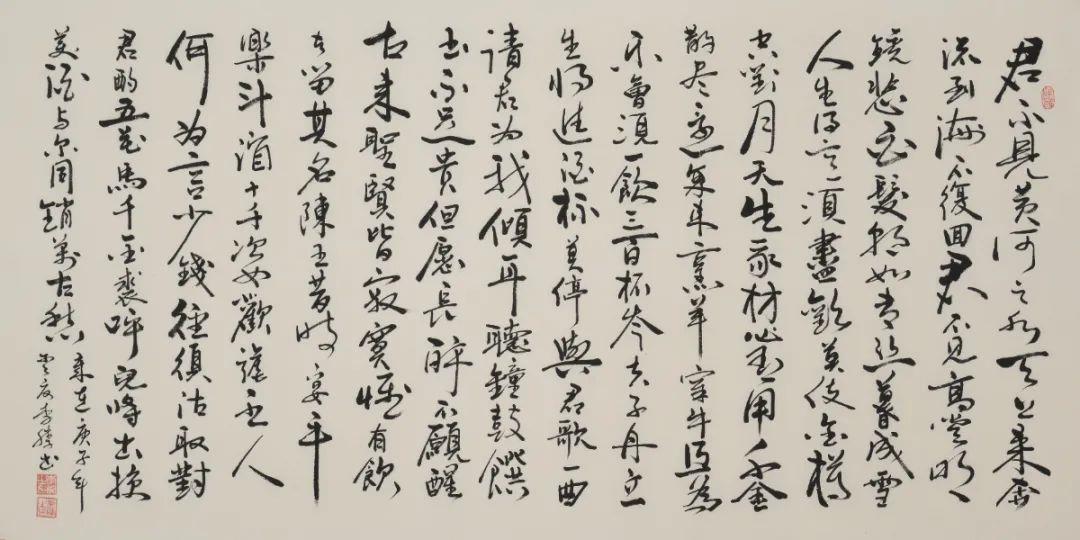 君不見黃河之水天上来奔
流到海不復回君不見高堂明
鏡悲白髮朝如青丝暮成雪
人生得意須盡歡莫使金樽
空對月天生我材必有用千金
散尽還復来烹羊宰牛且為
樂會須一飲三百杯岑夫子丹丘
生將進酒杯莫停與君歌一曲
請君为我傾耳聽鐘鼓饌
玉不足貴但愿長醉不願醒
古来聖賢皆寂寞惟有飲
者留其名陳王昔時宴平
樂斗酒十千恣歡謔主人
何为言少錢徑須沽取對
君酌五花馬千金裘呼兒將出换
美酒与尔同銷萬古愁
庚子年
李 书